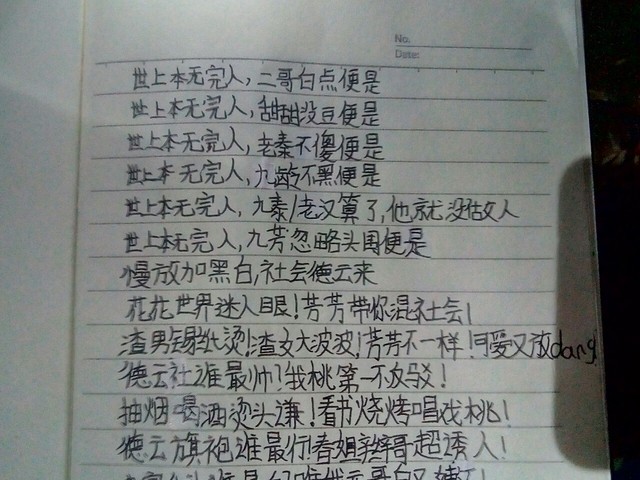 No.
Date:
世上本无完人,二哥白点便是
世上本无完人,甜甜没豆便是
世上本无完人,老秦不傻便是
世上本无完人,九龄不黑便是
世上本无完人,九泰/老汉算了,他就没估女人
世上本无完人,九芳忽略头围便是
慢放加黑白,社会德云来
花花世界迷人眼!芳芳带你混社会!
渣男锡纸烫!渣女大波波!芳芳不一样!可爱又放dang!
德云社谁最帅?我桃第一不反驳!
抽烟喝酒烫头谦!看书烧烤唱戏桃!
德云旗袍谁最行!春姐辫哥超诱人!